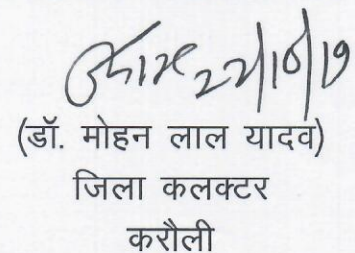 22/10/19
(डॉ. मोहन लाल यादव)
जिला कलक्टर
करौली